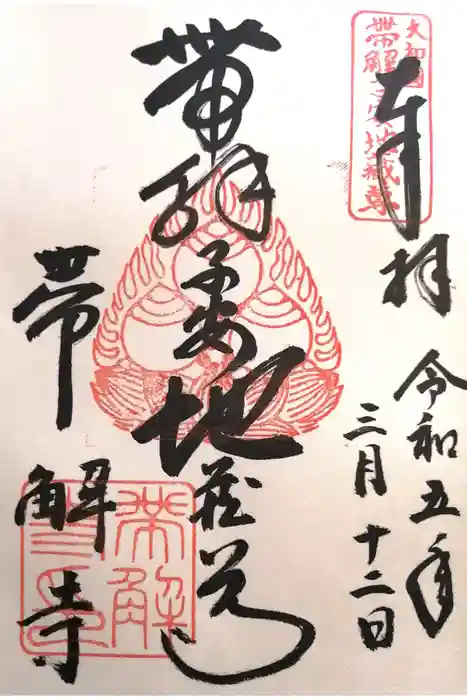 大和國
帶解子安地蔵尊
奉拝
令和五年
三月十二日
帯解子安地蔵尊
帯解寺
帯解